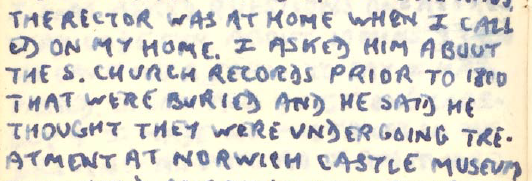 THE RECTOR WAS AT HOME WHEN I CALL
ED ON MY HOME. I ASKED HIM ABOUT
THE S. CHURCH RECORDS PRIOR TO 1800
THAT WERE BURIED AND HE SAID HE
THOUGHT THEY WERE UNDERGOING TRE-
ATMENT AT NORWICH CASTLE MUSEUM